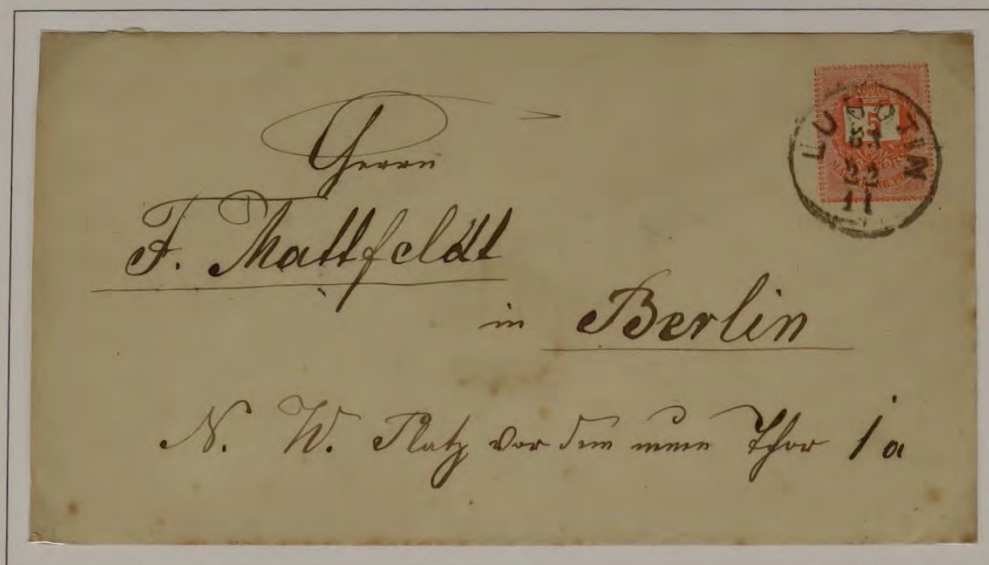 Herrn
F. Mattfeldt
in Berlin
N. W. Platz vor dem neuen Thor 1a
5
83
22
11